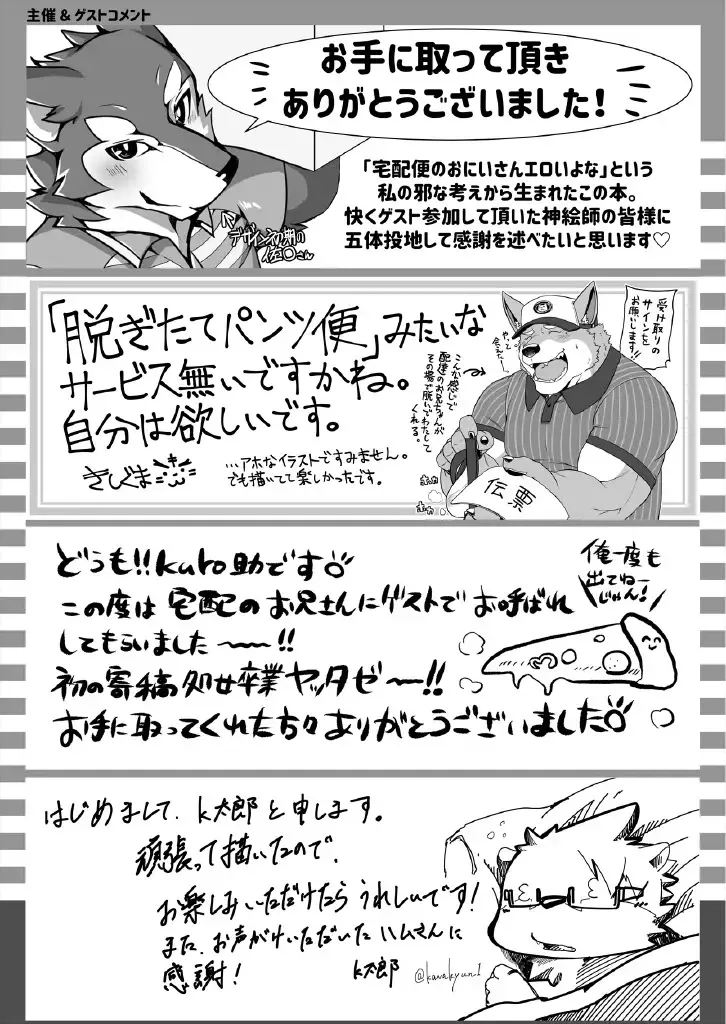 主催＆ゲストコメント
お手に取って頂き
ありがとうございました！
「宅配便のおにいさんエロいよな」という
私の邪な考えから生まれたこの本。
快くゲスト参加して頂いた神絵師の皆様に
五体投地して感謝を述べたいと思います♡
デザイン初期の
佐〇さん
「脱ぎたてパンツ便」みたいな
サービス無いですかね。
自分は欲しいです。
きしぐま
…アホなイラストですみません。
でも描いてて楽しかったです。
受け取りの
サインを
お願いします!!
こんな感じで
配達のお兄ちゃんが
その場で脱いでわたして
くれる。
伝票
どうも!!kuro助です
この度は宅配のお兄さんにゲストでお呼ばれ
してもらいました〜〜!!
初の寄稿処女卒業ヤッタゼ〜!!
お手に取ってくれた方々ありがとうございました
俺一度も
出てねー
じゃん!
はじめまして、K太郎と申します。
頑張って描いたので、
お楽しみいただけたらうれしいです!
また、お声がけいただいたハムさんに
感謝!
K太郎